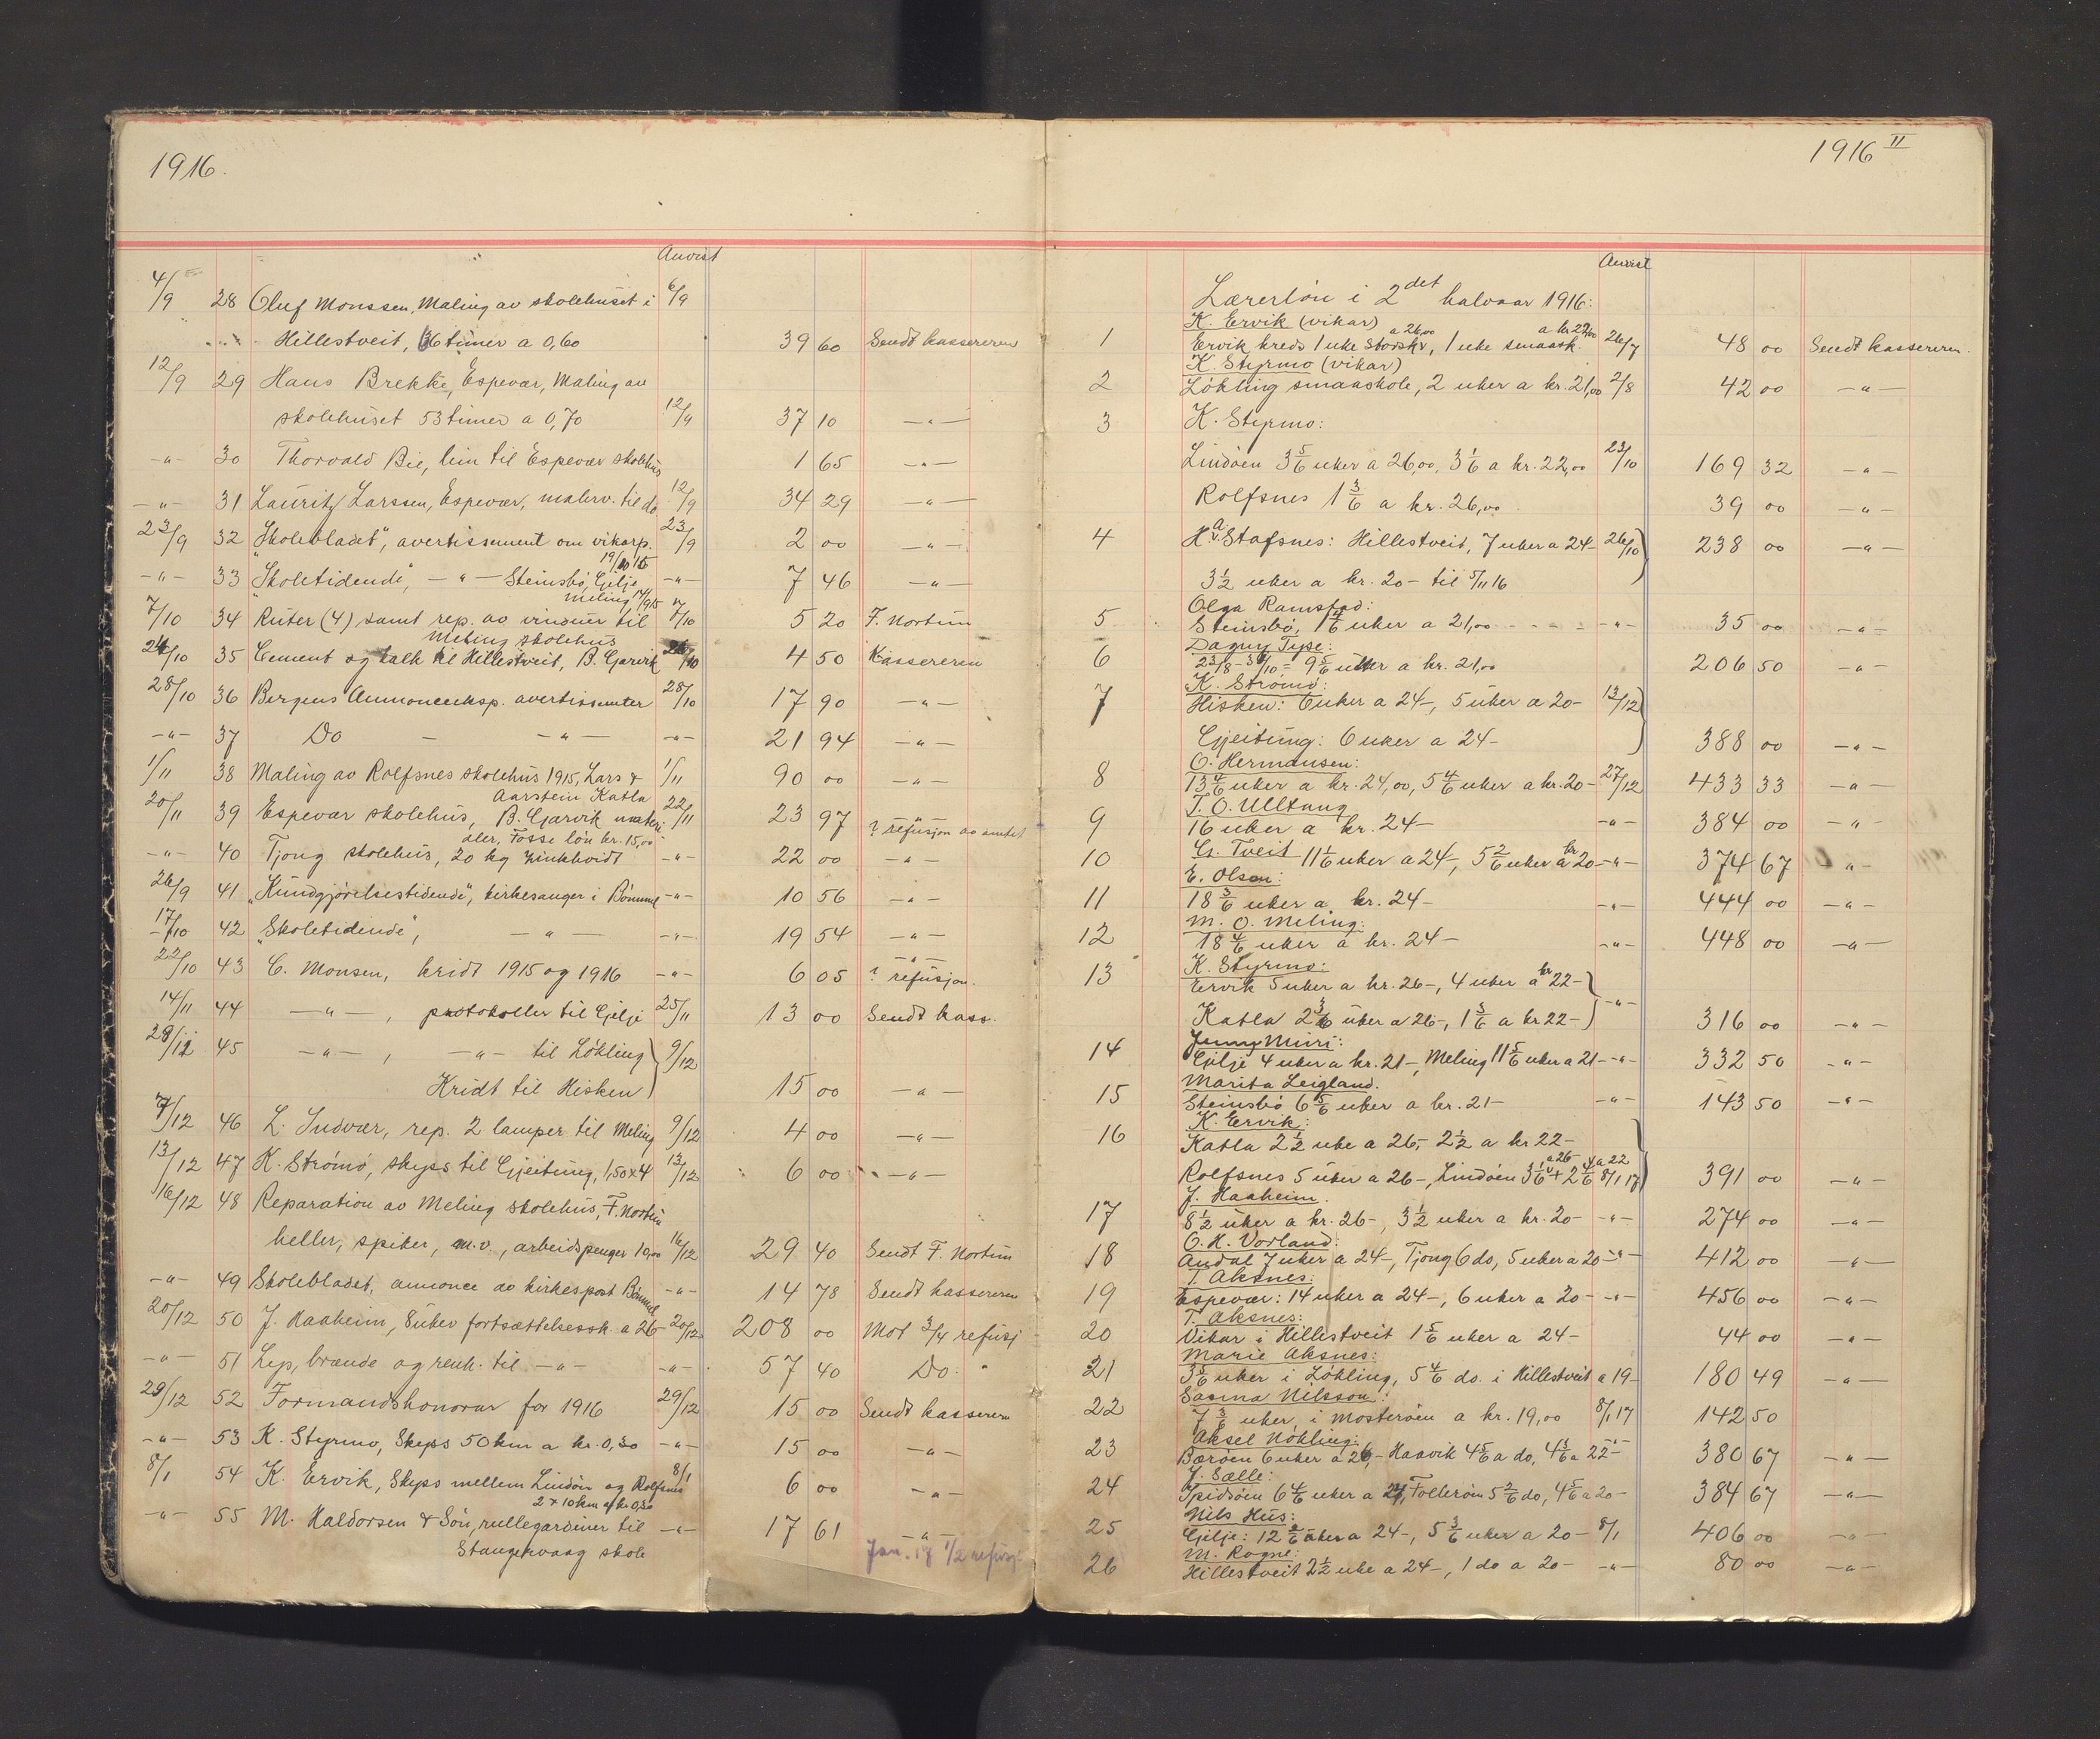 1916.
Anvist
4/9 28 Oluf Monssen, Maling av skolehuset i 6/9
Hillestveit, 66 timer a 0,60 39 60 Sendt kassereren
12/9 29 Hans Brekke, Espevær, Maling av
skolehuset 53 timer a 0,70 12/9 37 10 -"-
-"- 30 Thorvald Bie, lim til Espevær skolehus 1 65 -"-
-"- 31 Lauritz Larssen, Espevær, malerv. til do 12/9 34 29 -"-
23/9 32 "Skolebladet", avertissement om vikarp. 23/9 2 00 -"-
19/10 15
-"- 33 "Skoletidende", -"- Steinsbö, Gilje -"- 7 46 -"-
Meling
7/10 34 Ruter (4) samt rep. av vinduer til 7/10 5 20 F. Nortun
Meling skolehus
24/10 35 Cement og kalk til Hillestveit, B. Gjarvik 24/10 4 50 Kassereren
28/10 36 Bergens Annonceeksp. avertissementer 28/10 17 90 -"-
-"- 37 Do - -"- -"- 21 94 -"-
1/11 38 Maling av Rolfsnes skolehus 1915, Lars & 1/11 90 00 -"-
Aarstein Katla
20/11 39 Espevær skolehus, B. Gjarvik materi- 22/11 23 97 ? refusjon av amtet
aler, Fosse lön kr. 15,00
-"- 40 Tjong skolehus, 20 kg zinkhvidt -"- 22 00 -"-
26/9 41 "Kundgjörelsestidende", kirkesanger i Bömmel -"- 10 56 -"-
17/10 42 "Skoletidende", -"- -"- 19 54 -"-
22/10 43 C. Monsen, kridt 1915 og 1916 -"- 6 05 ? refusjon.
14/11 44 -"-, protokoller til Gilje 25/11 13 00 Sendt kass.
45 -"-, -"- til Lökling 9/12
Kridt til Hisken 15 00 -"-
7/12 46 L. Indvær, rep. 2 lamper til Meling 9/12 4 00 -"-
13/12 47 K. Strömö, skyss til Gjeitung, 1,50x4 13/12 6 00 -"-
16/12 48 Reparation av Meling skolehus, F. Nortun
heller, spiker, m.v., arbeidspenger 10,00 16/12 29 40 Sendt F. Nortun
-"- 49 Skolebladet, annonce av kirkespost Bömmel -"- 14 78 Sendt kassereren
20/12 50 J. Haaheim, 8 uker fortsættelsessk. a 26- 20/12 208 00 Mot 3/4 refusj
-"- 51 Lys, brænde og renh. til -"- -"- 57 40 Do. "
29/12 52 Formandshonorar for 1916 29/12 15 00 Sendt kassereren
-"- 53 K. Styrmo, Skyss 50 km a kr. 0,30 -"- 15 00 -"-
8/1 54 K. Ervik, Skyss mellem Lindöen og Rolfsnes 8/1 6 00 -"-
2 x 10 km a kr 0,30
-"- 55 M. Haldorsen & Sön, rullegardiner til -"- 17 61 -"-
Stangervaag skole Jan. 18 1/2 refusj.
1916 II
Anvist
Lærerlön i 2det halvaar 1916:
K. Ervik (vikar) a 26,00 a kr 22,00
1 Ervik kreds 1 uke storskv, 1 uke smaask. 26/7 48 00 Sendt kassereren.
K. Styrmo (vikar)
2 Lökling smaaskole, 2 uker a kr. 21,00 2/8 42 00 -"-
3 K. Styrmo:
Lindöen 3 5/6 uker a 26,00, 3 1/6 a kr. 22,00 23/10 169 32 -"-
Rolfsnes 1 3/6 a kr. 26,00 39 00 -"-
4 H. a. v. Stafsnes: Hillestveit, 7 uker a 24- 26/10 238 00 -"-
3 1/2 uker a kr. 20- til 5/11 16
Olga Ramstad:
5 Steinsbö, 1 4/6 uker a 21,00 - - - - -"- 35 00 -"-
Dagny Tyse:
6 23/8 - 31/10 = 9 5/6 uker a kr. 21,00 206 50 -"-
K. Strömö:
7 Hisken: 6 uker a 24-, 5 uker a 20- 13/12
Gjeitung: 6 uker a 24- 388 00 -"-
O. Hermansen:
8 13 4/6 uker a kr. 24,00, 5 4/6 uker a kr. 20- 27/12 433 33 -"-
T. O. Ulltang
9 16 uker a kr. 24- -"- 384 00 -"-
10 G. Tveit 11 1/6 uker a 24-, 5 2/6 uker a kr 20- -"- 374 67 "-
E. Olsen:
11 18 3/6 uker a kr. 24- -"- 444 00 -"-
M. O. Meling:
12 18 4/6 uker a kr. 24- -"- 448 00 -"-
K. Styrmo:
13 Ervik 5 uker a kr. 26-, 4 uker a kr 22-
Katla 2 3/6 uker a 26-, 1 3/6 a kr 22- -"- 316 00 -"-
Jenny Muri:
14 Gilje 4 uker a kr. 21-, Meling 11 5/6 uker a 21- -"- 332 50 -"-
Marita Leigland.
15 Steinsbö 6 5/6 uker a kr. 21- -"- 143 50 -"-
K. Ervik:
16 Katla 2 1/2 uke a 26,- 2 1/2 a kr 22-
Rolfsnes 5 uker a 26-, Lindöen 3 1/6 a 26- + 2 4/6 a 22 8/1 17 391 00 -"-
J. Haaheim.
17 8 1/2 uker a kr. 26-, 3 1/2 uker a kr. 20- -"- 274 00 -"-
O. H. Vorland:
18 Andal 7 uker a 24-, Tjong 6 do, 5 uker a 20- -"- 412 00 -"-
T. Aksnes:
19 Espevær: 14 uker a 24-, 6 uker a 20- -"- 456 00 -"-
T. Aksnes:
20 Vikar i Hillestveit 1 5/6 uker a 24- 44 00 -"-
Marie Aksnes:
21 3 5/6 uker i Lökling, 5 4/6 do. i Hillestveit a 19- 180 49 -"-
Nilsson:
22 7 3/6 uker i Mosteröen a kr. 19,00 8/1 17 142 50
Aksel Nökling:
23 Baröen 6 uker a 26,- Haavik 4 5/6 a do, 4 3/6 a 22- -"- 380 67 -"-
J. Sælle:
24 Spidsöen 6 4/6 uker a 24, Folleröen 5 2/6 do, 4 5/6 a 20- 384 67 -"-
Nils Hus:
25 Gilje: 12 2/6 uker a 24-, 5 3/6 uker a 20- 8/1 406 00 -"-
M. Rogne:
26 Hillestveit 2 1/2 uke a 24-, 1 do a 20- -"- 80 00 -"-